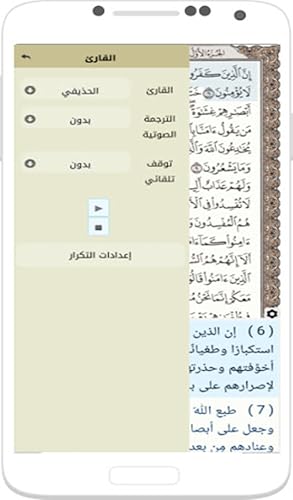 القارئ
القارئ
الحذيفي
الترجمة
الصوتية
بدون
توقف
تلقائي
بدون
إعدادات التكرار
الجزء الأول
إِنَّ ٱلَّذِينَ كَفَرُو
لَا يُؤْمِنُونَ
أَبْصَٰرِهِمْ غِشَٰوَةٌ
مَن يَقُولُ ءَامَنَّا بِٱ
يُخَٰدِعُونَ ٱللَّهَ وَٱلَّ
وَمَا يَشْعُرُونَ
وَلَهُمْ عَذَابٌ أَلِي
لَا تُفْسِدُوا۟ فِي ٱلْ
هُمُ ٱلْمُفْسِدُونَ وَ
ءَامِنُوا۟ كَمَآ ءَامَ
أَلَآ إِنَّهُمْ هُمُ ٱلسُّ
ٱلَّذِينَ ءَامَنُوا۟ قَالُ
مَعَكُمْ إِنَّمَا نَحْنُ مُ
(6) إن الذين
استكبارًا وطغيانً
أخوّفتهم وحذرته
لإصرارهم على با
(7) طبع الله
وجعل على أبصا
وعنادهم مِن بعد